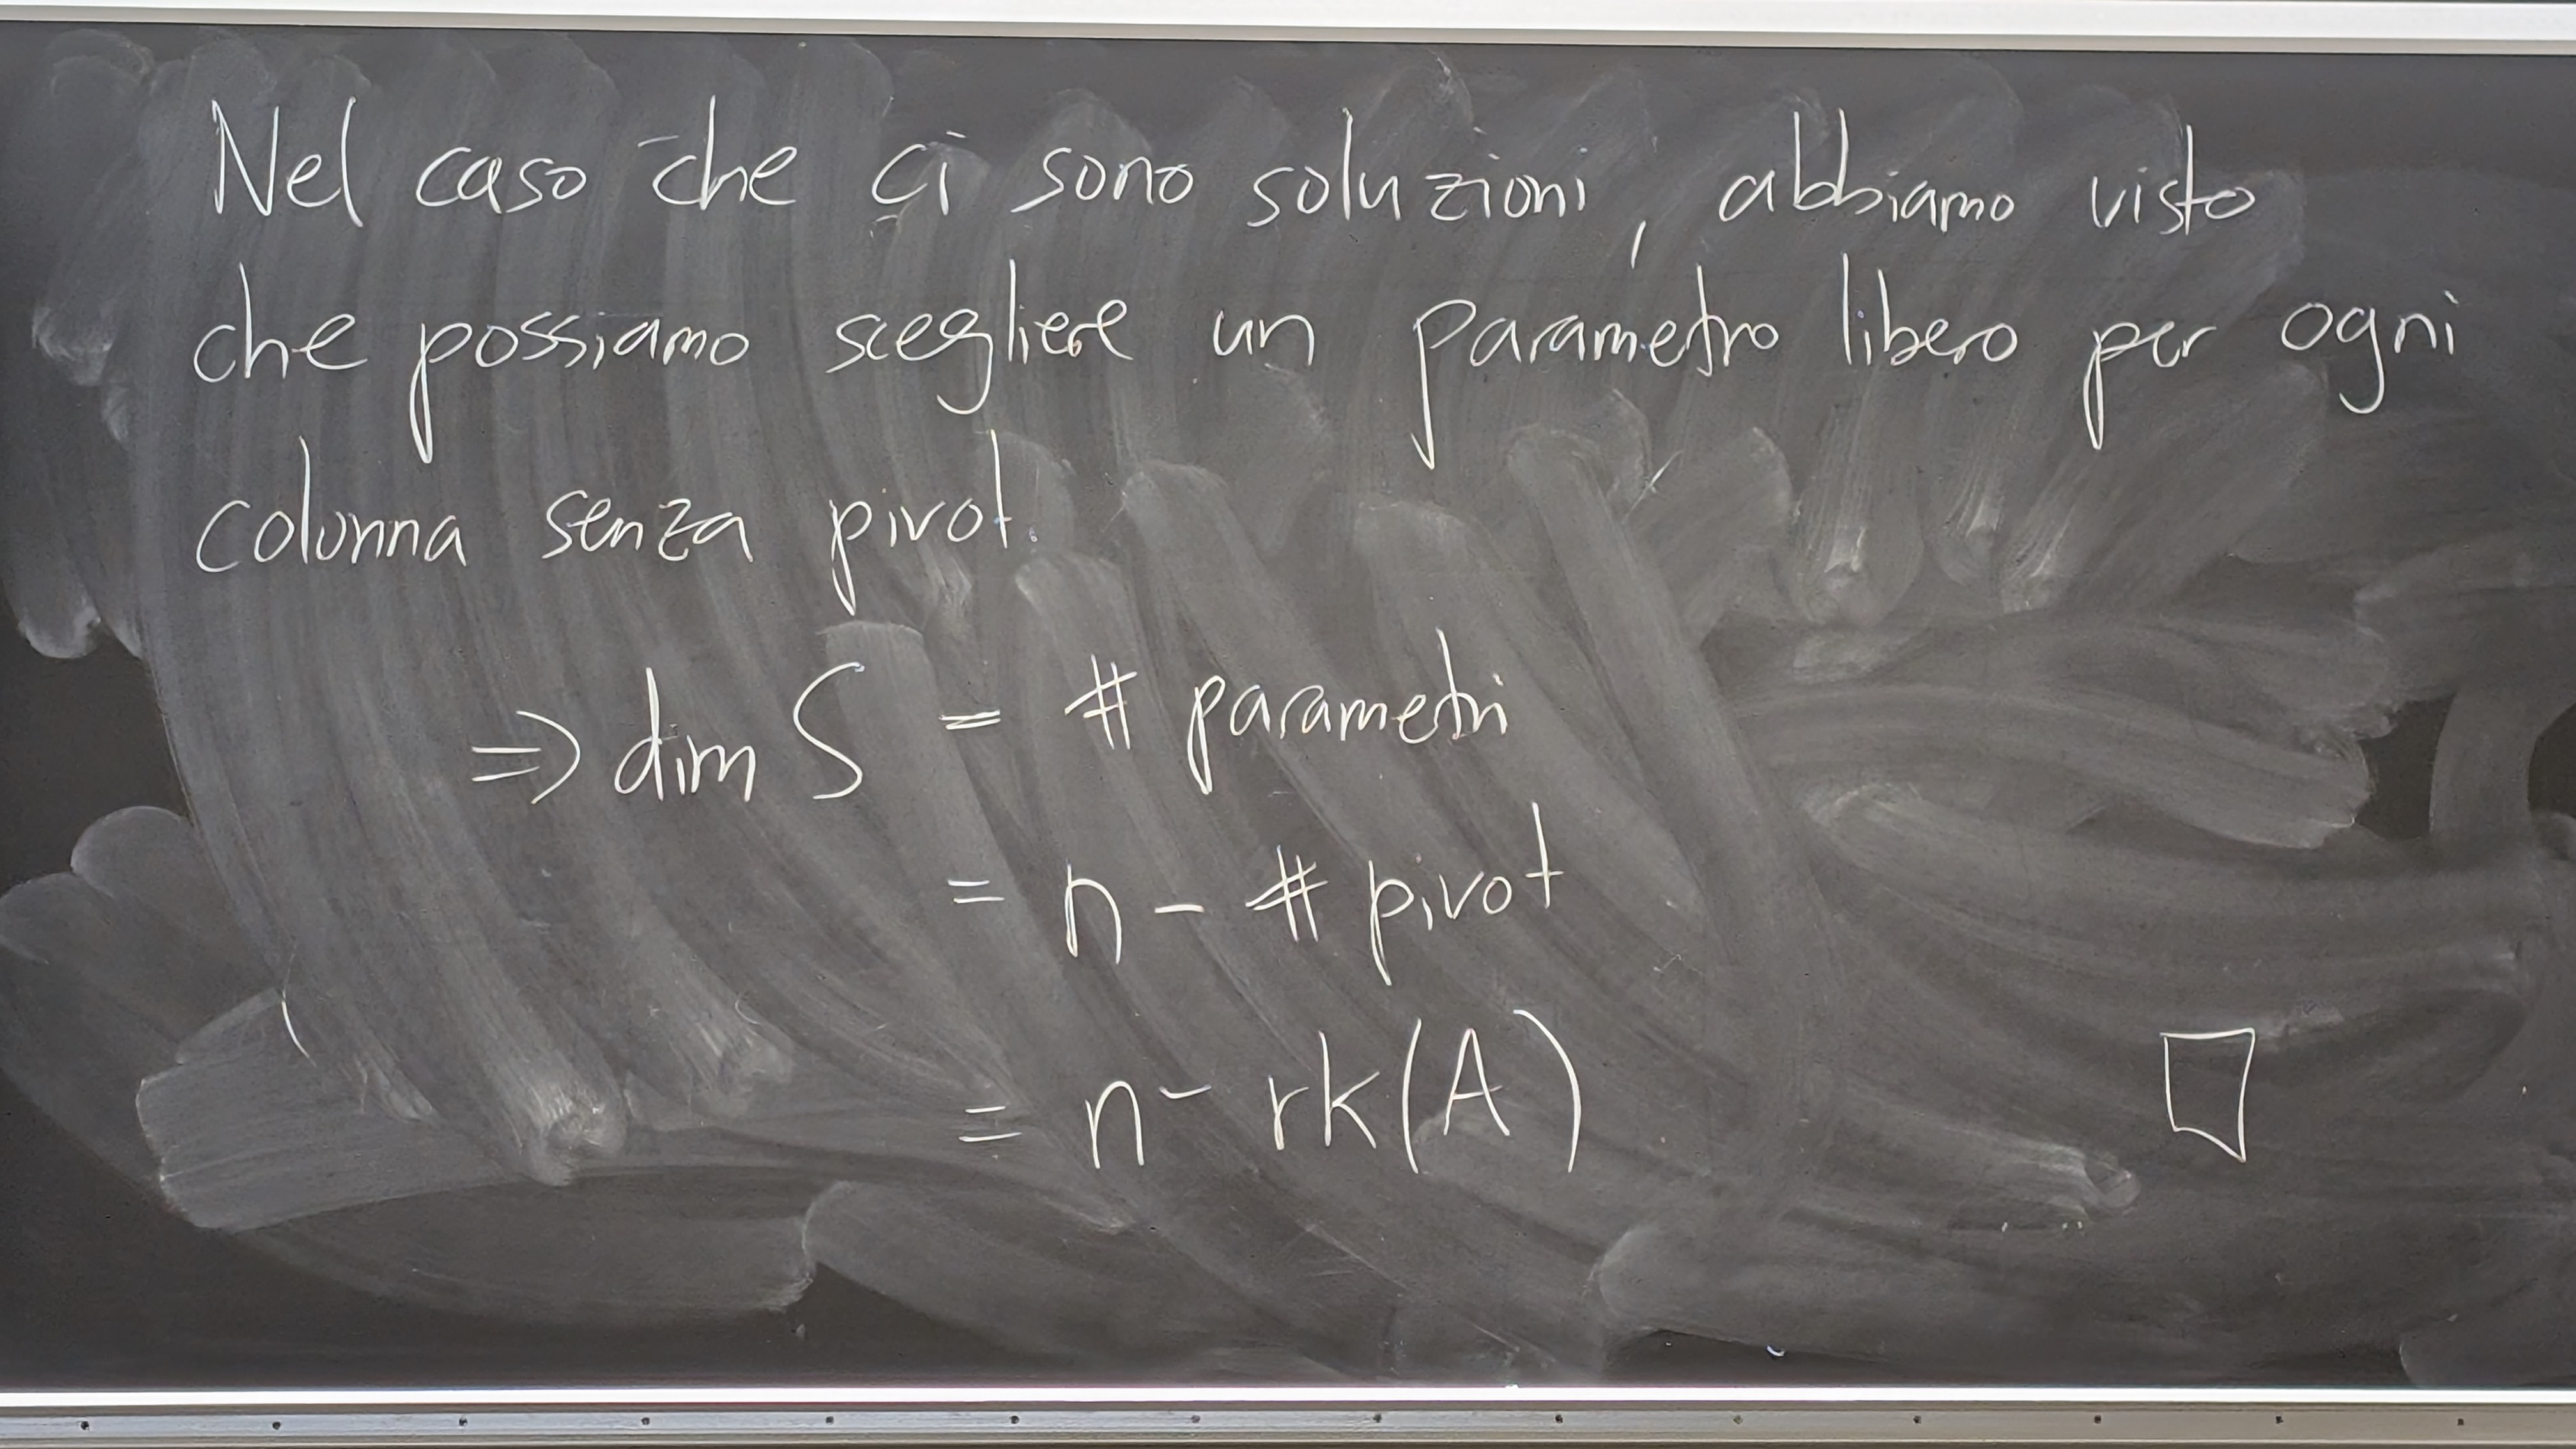 Nel caso che ci sono soluzioni, abbiamo visto
che possiamo scegliere un parametro libero per ogni
colonna senza pivot.
⇒ dim S = # parametri
= n - # pivot
= n - rk(A) □